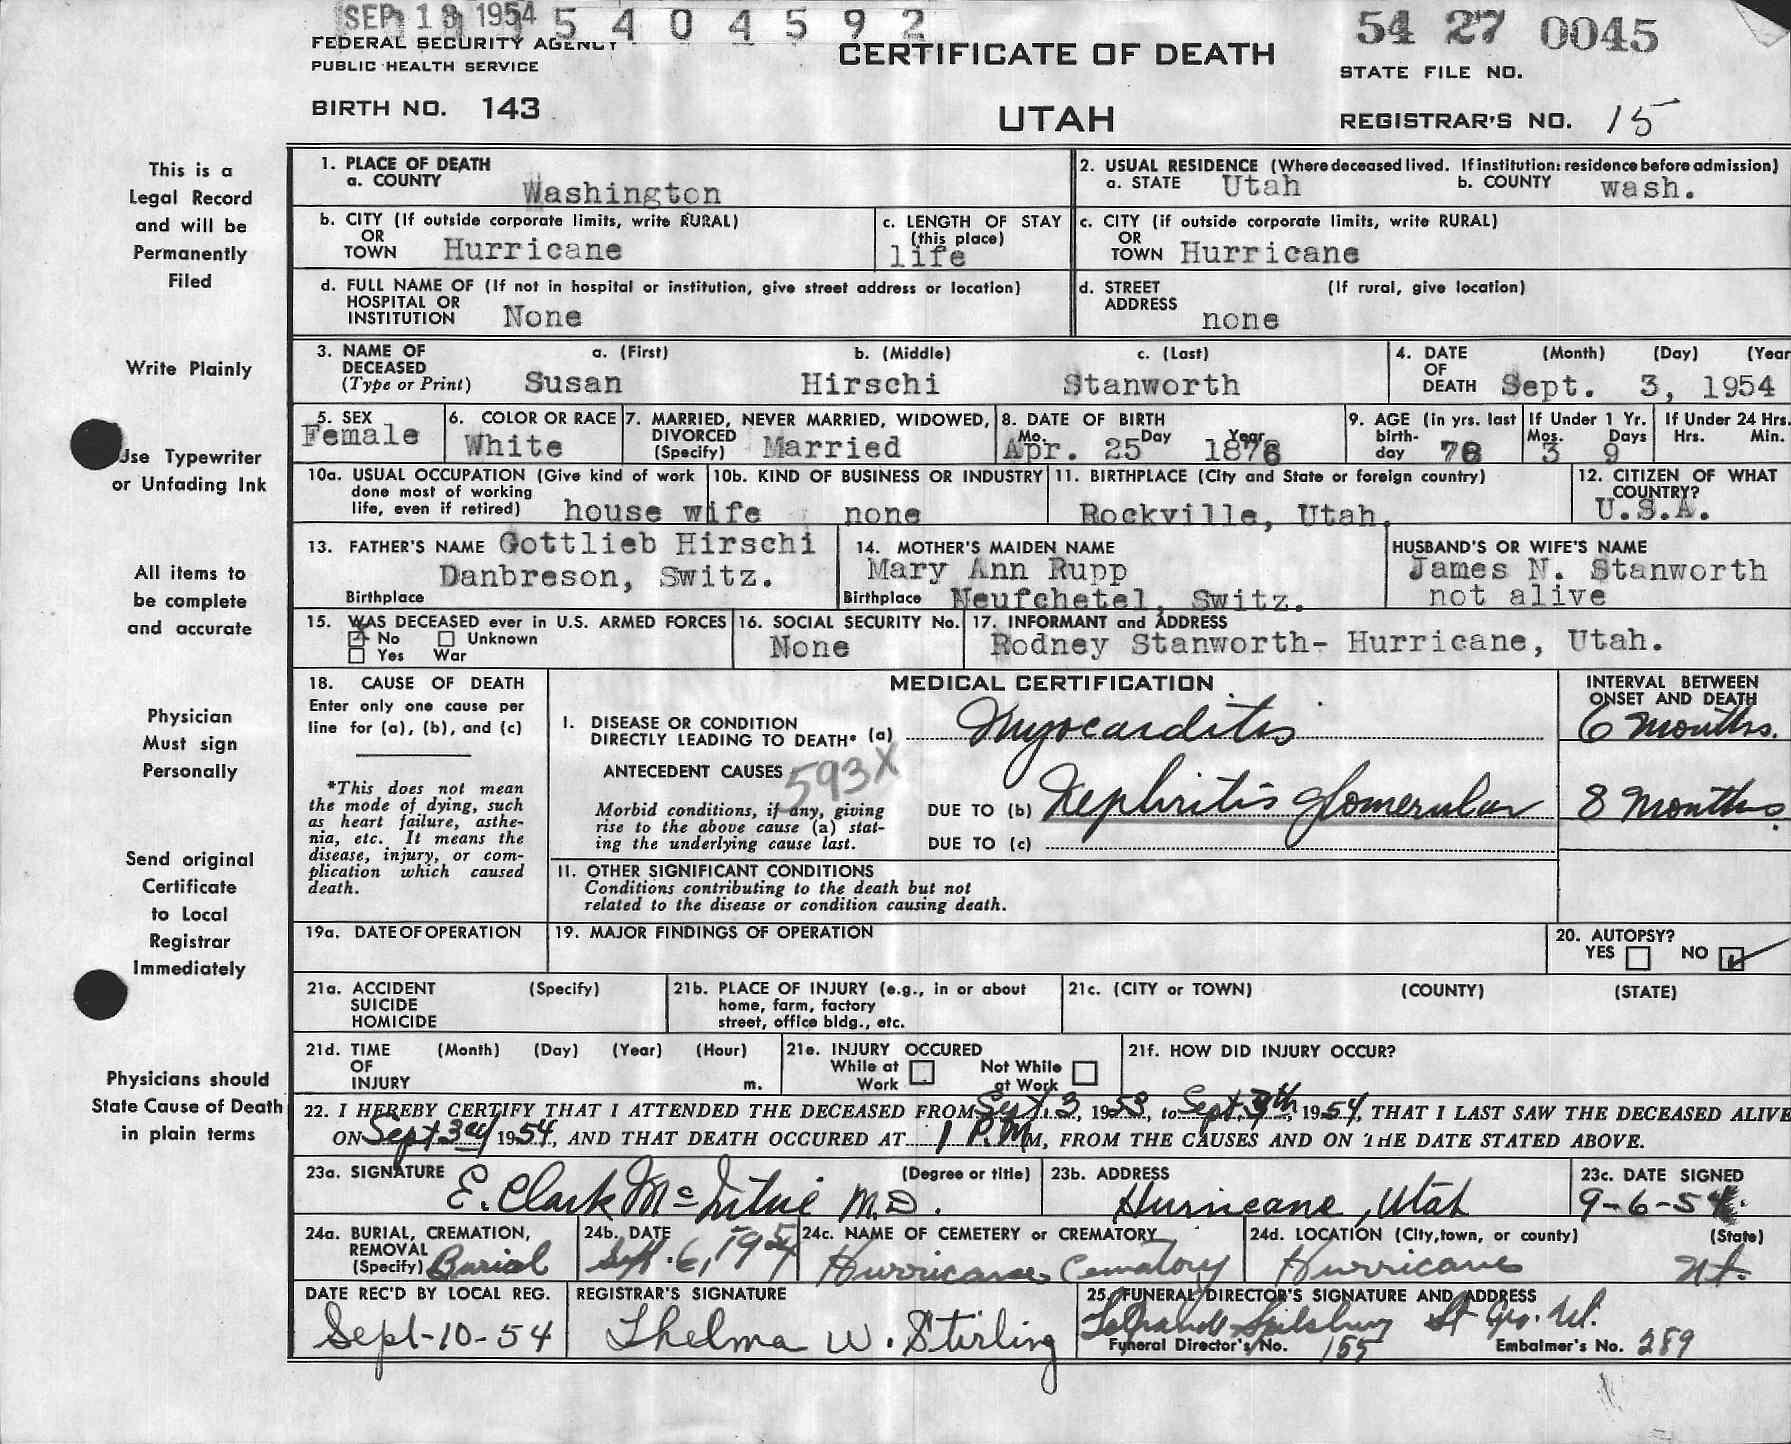 SEP 13 1954 5 4 0 4 5 9 2
54 27 0045
FEDERAL SECURITY AGENCY
PUBLIC HEALTH SERVICE
CERTIFICATE OF DEATH
STATE FILE NO.
BIRTH NO. 143
UTAH
REGISTRAR'S NO. 15
This is a
Legal Record
and will be
Permanently
Filed
Write Plainly
Use Typewriter
or Unfading Ink
All items to
be complete
and accurate
Physician
Must sign
Personally
Send original
Certificate
to Local
Registrar
Immediately
Physicians should
State Cause of Death
in plain terms
1. PLACE OF DEATH
a. COUNTY Washington
2. USUAL RESIDENCE (Where deceased lived. If institution: residence before admission)
a. STATE Utah b. COUNTY wash.
b. CITY (If outside corporate limits, write RURAL)
OR
TOWN Hurricane
c. LENGTH OF STAY
(this place)
life
c. CITY (if outside corporate limits, write RURAL)
OR
TOWN Hurricane
d. FULL NAME OF (If not in hospital or institution, give street address or location)
HOSPITAL OR
INSTITUTION None
d. STREET (If rural, give location)
ADDRESS
none
3. NAME OF a. (First) b. (Middle) c. (Last)
DECEASED
(Type or Print) Susan Hirschi Stanworth
4. DATE (Month) (Day) (Year
OF
DEATH Sept. 3, 1954
5. SEX
Female
6. COLOR OR RACE
White
7. MARRIED, NEVER MARRIED, WIDOWED,
DIVORCED
(Specify) Married
8. DATE OF BIRTH
Mo. Day Year
Apr. 25 1878
9. AGE (in yrs. last
birth-
day 76
If Under 1 Yr.
Mos. Days
3 9
If Under 24 Hrs.
Hrs. Min.
10a. USUAL OCCUPATION (Give kind of work
done most of working
life, even if retired) house wife
10b. KIND OF BUSINESS OR INDUSTRY
none
11. BIRTHPLACE (City and State or foreign country)
Rockville, Utah,
12. CITIZEN OF WHAT
COUNTRY?
U.S.A.
13. FATHER'S NAME Gottlieb Hirschi
Danbreson, Switz.
Birthplace
14. MOTHER'S MAIDEN NAME
Mary Ann Rupp
Birthplace Neufchetel, Switz.
HUSBAND'S OR WIFE'S NAME
James N. Stanworth
not alive
15. WAS DECEASED ever in U.S. ARMED FORCES
No Unknown
Yes War
16. SOCIAL SECURITY No.
None
17. INFORMANT and ADDRESS
Rodney Stanworth- Hurricane, Utah.
18. CAUSE OF DEATH
Enter only one cause per
line for (a), (b), and (c)
*This does not mean
the mode of dying, such
as heart failure, asthe-
nia, etc. It means the
disease, injury, or com-
plication which caused
death.
MEDICAL CERTIFICATION
INTERVAL BETWEEN
ONSET AND DEATH
I. DISEASE OR CONDITION
DIRECTLY LEADING TO DEATH* (a) Myocarditis 6 months.
ANTECEDENT CAUSES 593X
Morbid conditions, if any, giving
rise to the above cause (a) stat-
ing the underlying cause last.
DUE TO (b) Nephritis glomerular 8 months.
DUE TO (c)
II. OTHER SIGNIFICANT CONDITIONS
Conditions contributing to the death but not
related to the disease or condition causing death.
19a. DATE OF OPERATION
19. MAJOR FINDINGS OF OPERATION
20. AUTOPSY?
YES NO
21a. ACCIDENT (Specify)
SUICIDE
HOMICIDE
21b. PLACE OF INJURY (e.g., in or about
home, farm, factory
street, office bldg., etc.
21c. (CITY or TOWN) (COUNTY) (STATE)
21d. TIME (Month) (Day) (Year) (Hour)
OF
INJURY m.
21e. INJURY OCCURED
While at Not While
Work at Work
21f. HOW DID INJURY OCCUR?
22. I HEREBY CERTIFY THAT I ATTENDED THE DECEASED FROM Sept. 3, 1953, to Sept. 1954, THAT I LAST SAW THE DECEASED ALIVE
ON Sept 3rd 1954, AND THAT DEATH OCCURED AT 1 P.M M, FROM THE CAUSES AND ON THE DATE STATED ABOVE.
23a. SIGNATURE (Degree or title)
E. Clark M.D.
23b. ADDRESS
Hurricane, Utah
23c. DATE SIGNED
9-6-54
24a. BURIAL, CREMATION,
REMOVAL
(Specify) Burial
24b. DATE
Sept. 6, 1954
24c. NAME OF CEMETERY or CREMATORY
Hurricane Cematory
24d. LOCATION (City, town, or county) (State)
Hurricane Ut.
DATE REC'D BY LOCAL REG.
Sept-10-54
REGISTRAR'S SIGNATURE
Thelma W. Stirling
25. FUNERAL DIRECTOR'S SIGNATURE AND ADDRESS
St Geo. Ut.
Funeral Director's No. 155 Embalmer's No. 289